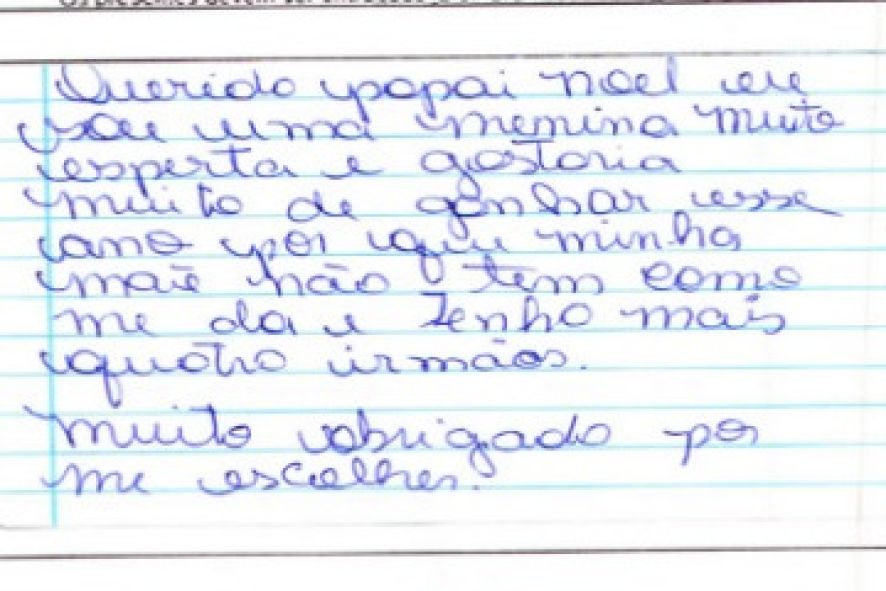 Querido papai noel eu
sou uma menina muito
esperta e gostaria
muito de ganhar esse
ano por que minha
mãe não tem como
me da e tenho mais
quatro irmãos.
Muito obrigado por
me escolher.